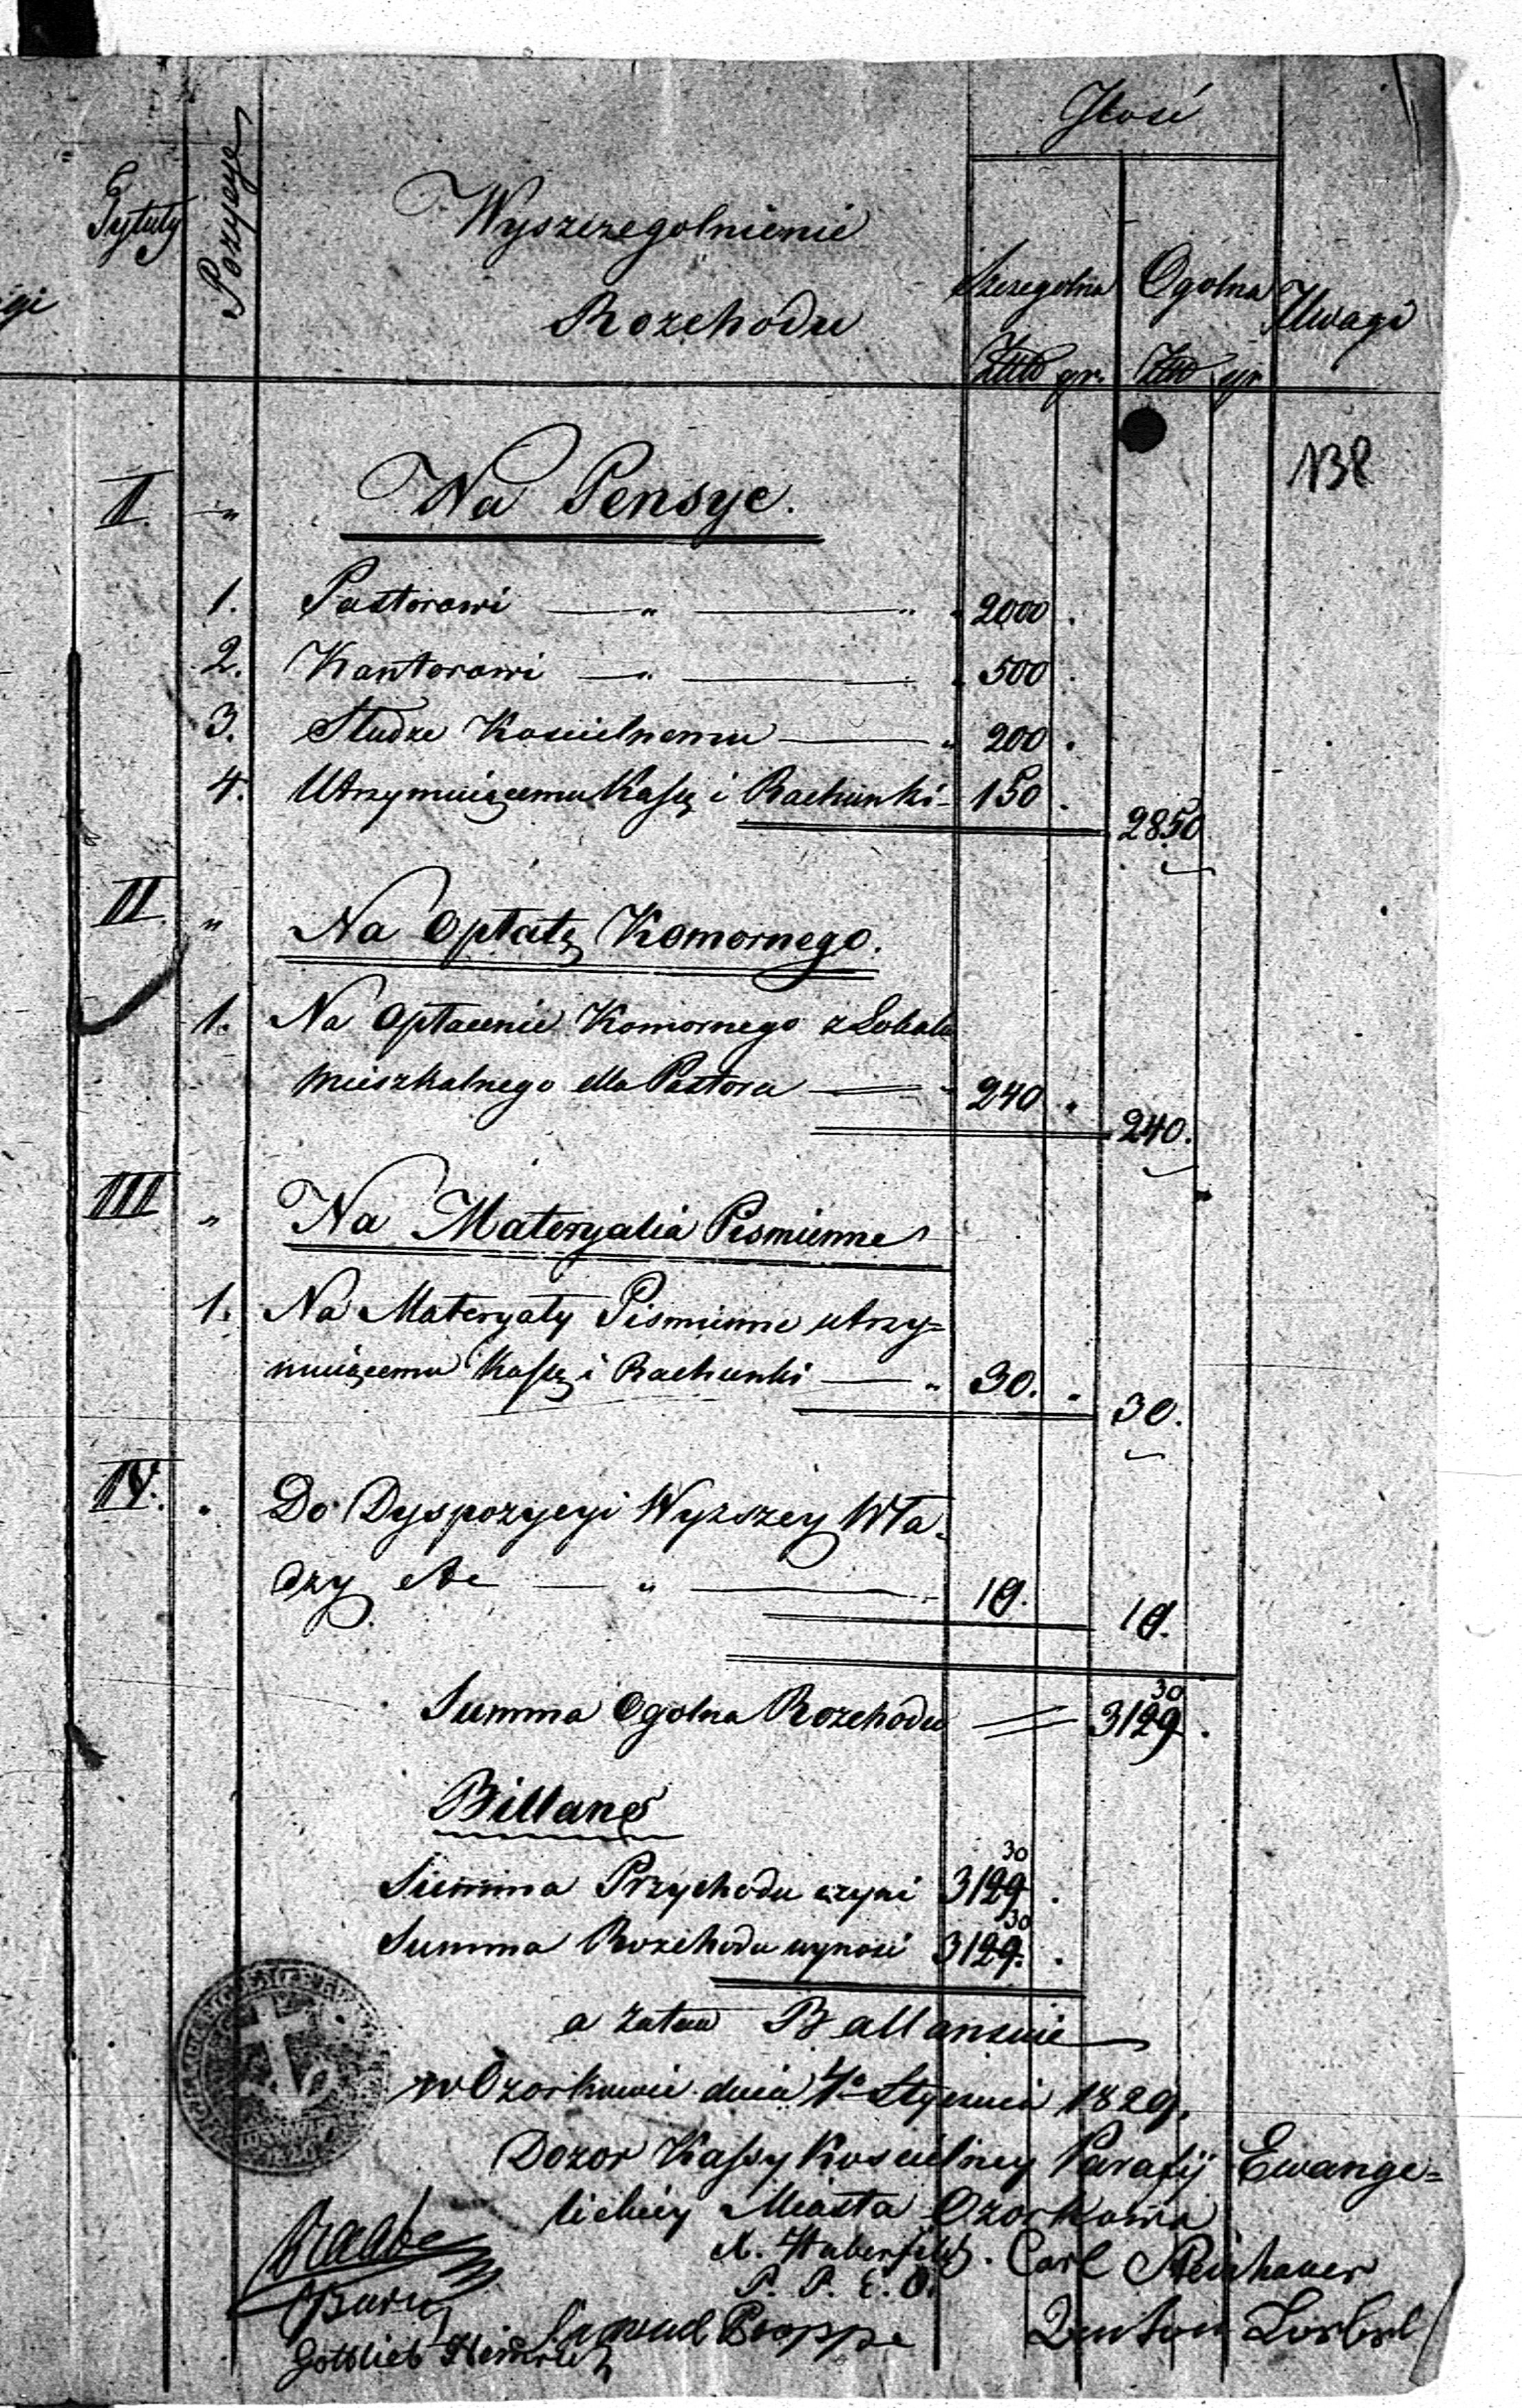 Ilość
Tytuły Pozycye Wyszczegolnienie Rozchodu Szczegolna Ogolna Uwagi
Złtt gr. Złtt gr
138
II. " Na Pensye.
1. Pastorowi — " — " 2000 .
2. Kantorowi — " — " 500 .
3. Słudze Koscielnemu — " 200 .
4. Utrzymuiącemu Kassę i Rachunki - 150 . 2850
II. " Na Opłatę Komornego.
1. Na Opłacenie Komornego z Lokalu
mieszkalnego dla Pastora — " 240 . 240.
III " Na Materyalia Pismienne
1. Na Materyały Pismienne utrzy=
muiącemu Kassę i Rachunki — " 30. " 30.
IV. . Do Dyspozycyi Wyższey Wła-
dzy etc — " — 10. 10.
30
Summa Ogolna Rozchodu 3129 .
Billans
30
Summa Przychodu czyni 3129 .
30
Summa Rozchodu wynosi 3129. .
a zatem Ballansuie
w Ozorkowie dnia 4o Stycznia 1829.
Dozor Kassy Koscielney Parafij Ewange=
lickiey Miasta Ozorkowa
Raabe
Carl
P. P. E. O.
Samuel Poppe
Gottlieb